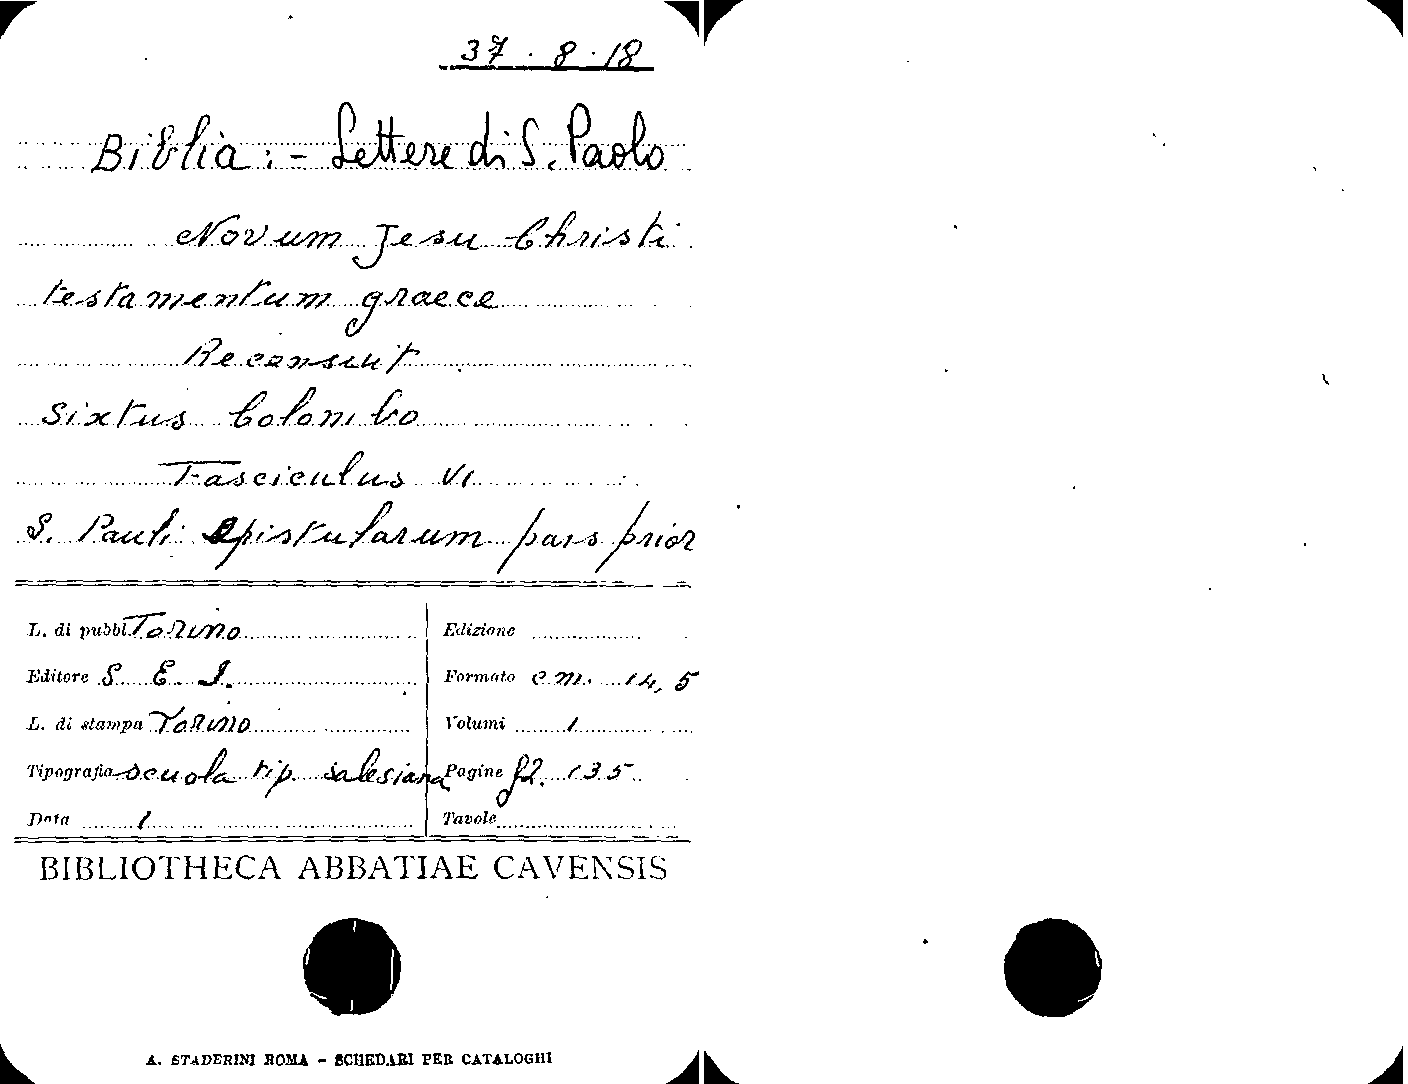 37.8.18
Biblia: - Lettere di S. Paolo
Novum Jesu Christi
testamentum graece
Recensuit
Sixtus Colombo
Fasciculus VI
S. Pauli epistularum pars prior
L. di pubbl. Torino
Edizione
Editore S. E. I.
Formato cm. 14,5
L. di stampa Torino
Volumi 1
Tipografia scuola tip. salesiana
Pagine 135
Data /
Tavole
BIBLIOTHECA ABBATIAE CAVENSIS
A. STADERINI ROMA - SCHEDARI PER CATALOGHI